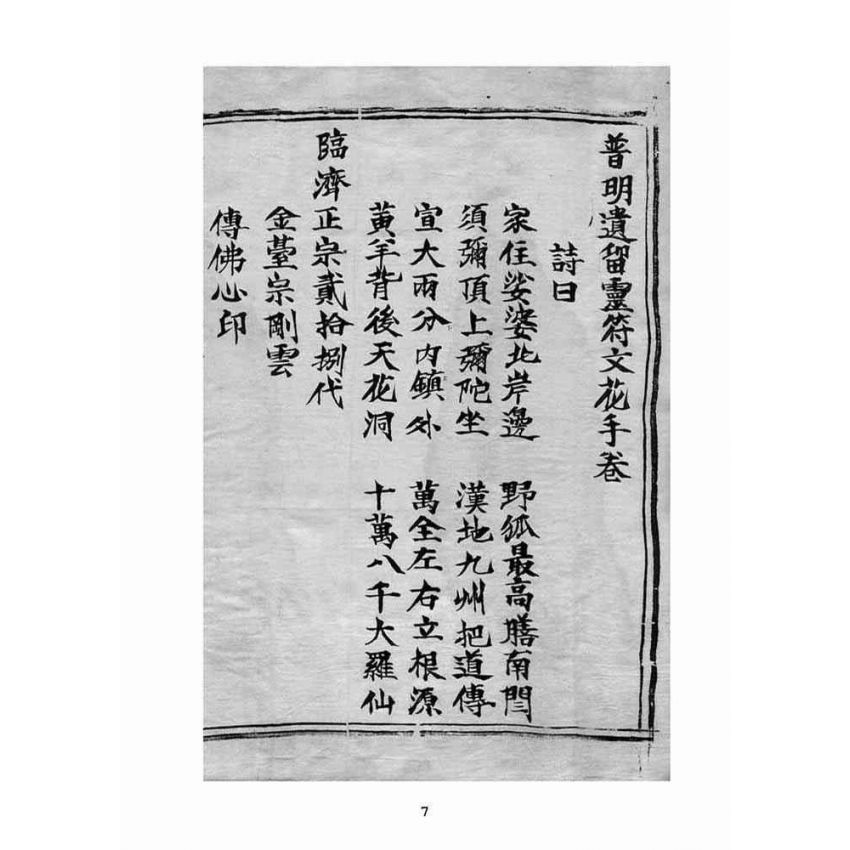 普明遺留靈符文花手卷
詩曰
家住娑婆北岸邊 野狐最高膳南閻
須彌頂上彌陀坐 漢地九州把道傳
宣大兩分內鎮外 萬全左右立根源
黃羊背後天花洞 十萬八千大羅仙
臨濟正宗貳拾捌代
金臺宗剛雲
傳佛心印
7